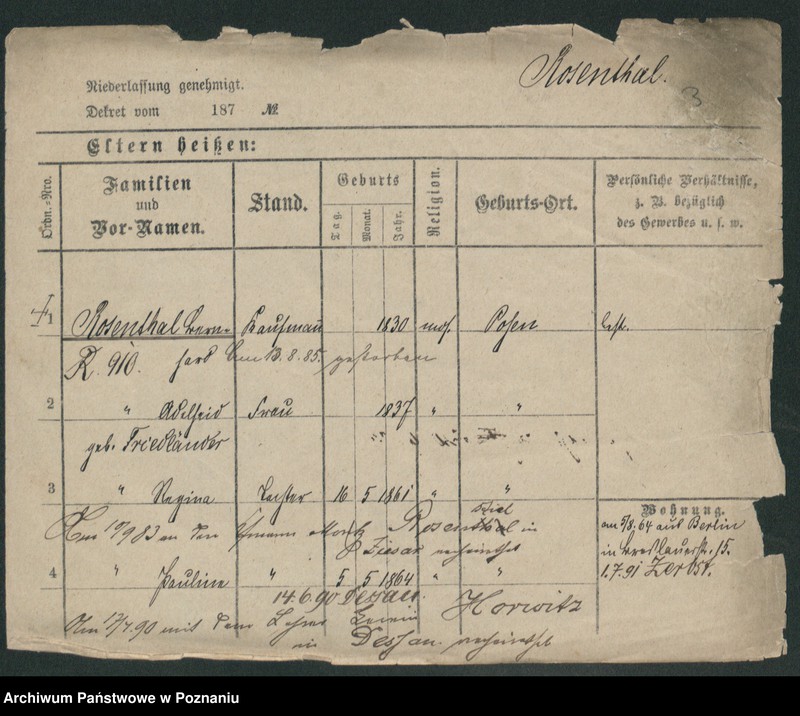 Rosenthal.
3
Niederlassung genehmigt.
Dekret vom 187 №
Eltern heißen:
Ordn.-Nro.
Familien und Vor-Namen.
Stand.
Geburts
Tag. Monat. Jahr.
Religion.
Geburts-Ort.
Persönliche Verhältnisse, z. B. bezüglich des Gewerbes u. s. w.
1 Rosenthal Kaufmann 1830 mos. Posen
K. 910. 13.8.85. gestorben
2 " Adelheid Frau 1837 " "
geb. Friedländer
3 " Regina Tochter 16 5 1861 " "
Wohnung.
Am 10/9 83 an den Moritz Rosenthal in
Ziesar verheirathet
am 5/8.64 aus Berlin
in Breslauerst. 15.
1.7.91 Zerbst.
4 " Pauline " 5 5 1864 " "
14.6.90 Dessau.
Am 17/7.90 mit dem Lehrer Horwitz
in Dessau verheirathet
Archiwum Państwowe w Poznaniu